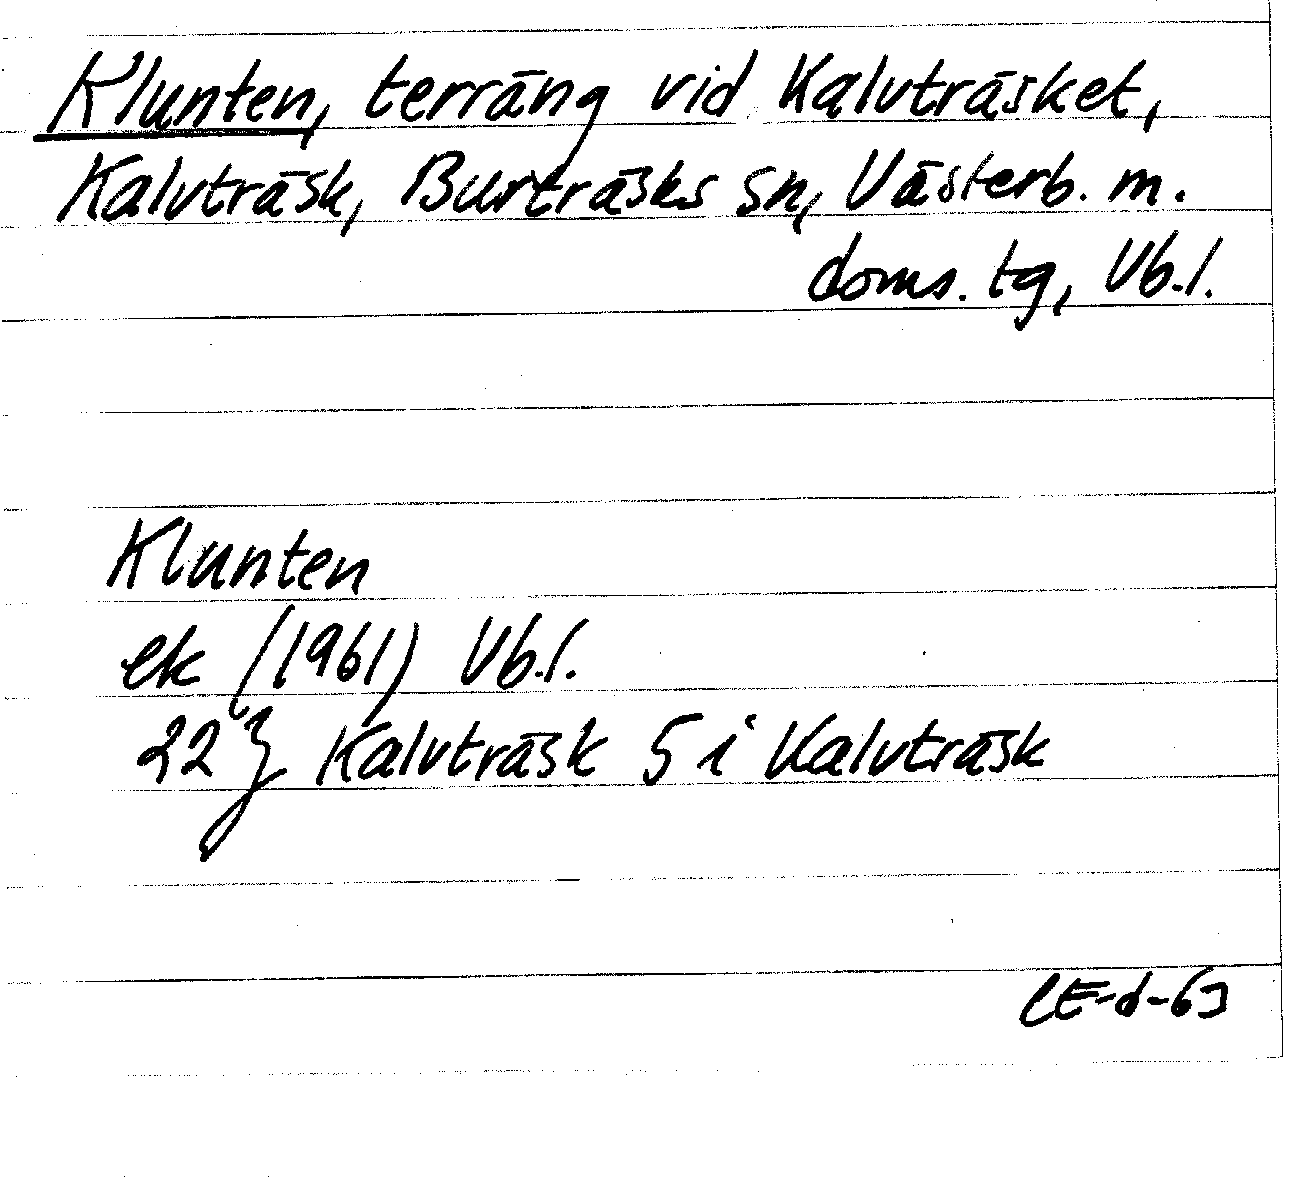 Klunten, terräng vid Kalvträsket,
Kalvträsk, Burträsks sn, Västerb. m.
doms. tg, Vb.l.
Klunten
ek (1961) Vb.l.
22 J Kalvträsk 5 i Kalvträsk